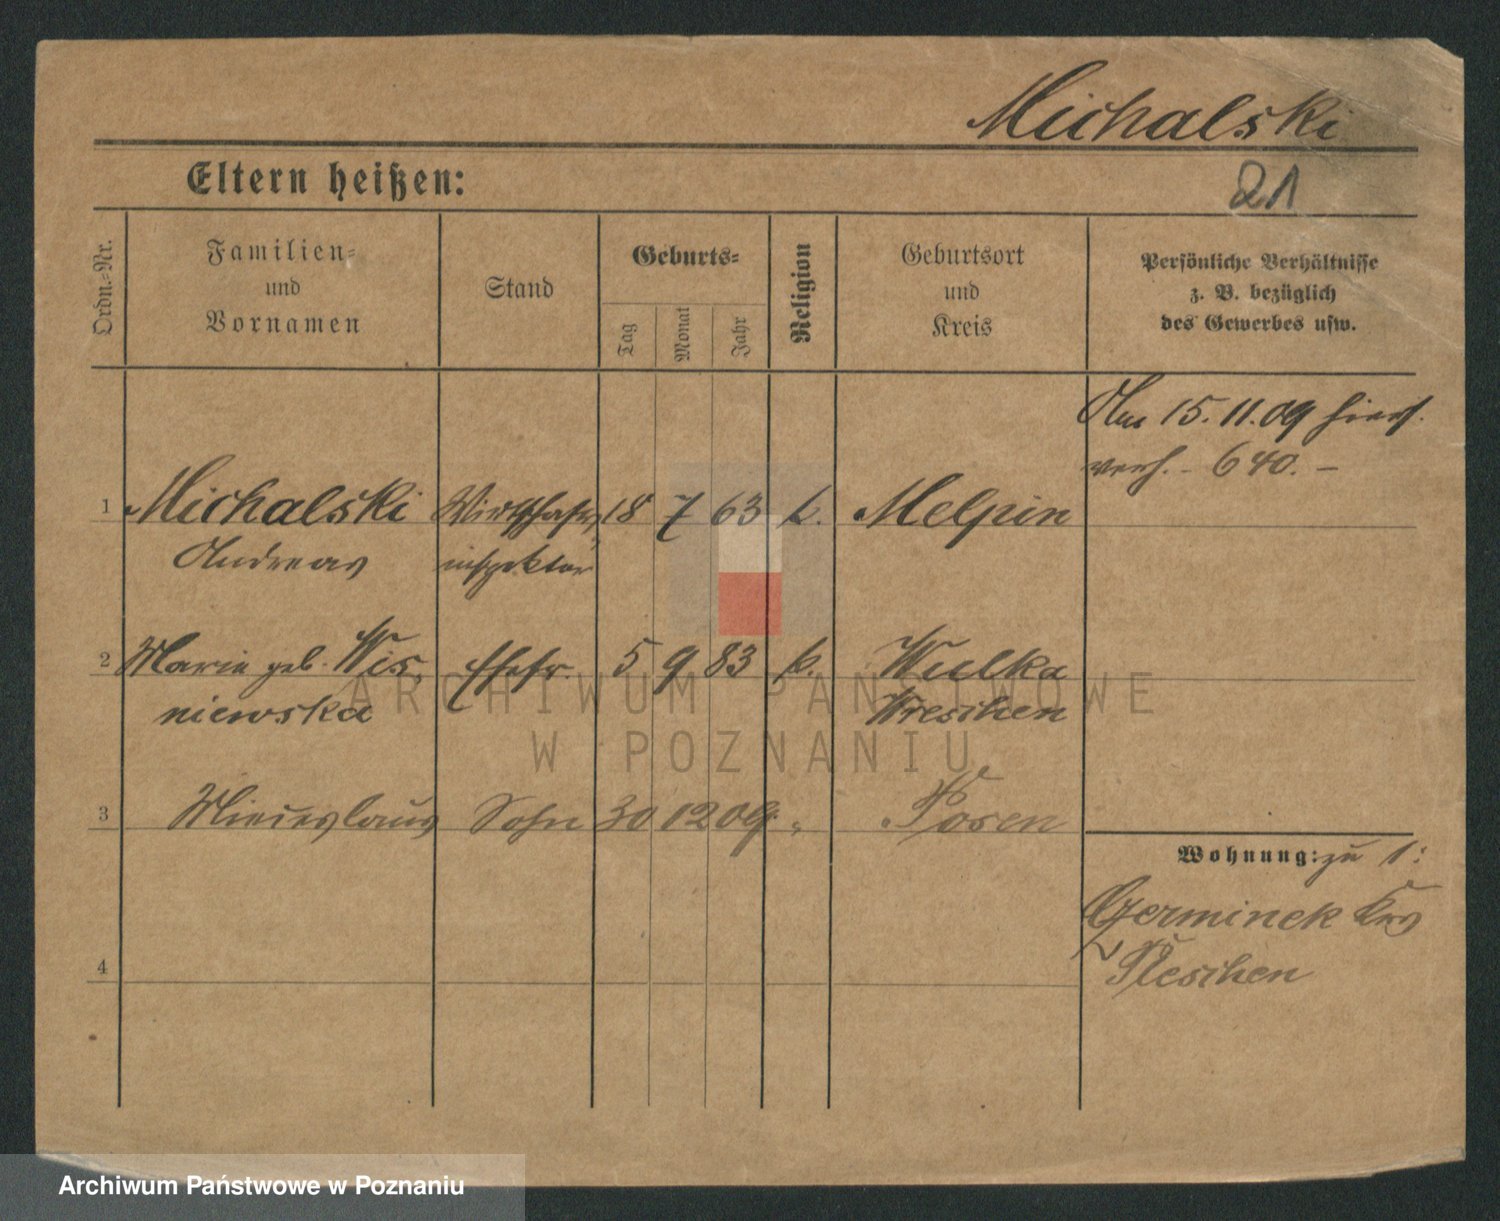 Michalski
21
Eltern heißen:
Ordn.-Nr.
Familien-
und
Vornamen
Stand
Geburts-
Tag
Monat
Jahr
Religion
Geburtsort
und
Kreis
Persönliche Verhältnisse
z. B. bezüglich
des Gewerbes usw.
Am 15.11.09 hiers.
verh. - 640. -
1 Michalski Wirtschafts- 18 7 63 k. Melpin
Andreas inspektor
2 Marie geb. Wis- Ehefr. 5 9 83 k. Wulka
niewska Wreschen
3 Miecislaus Sohn 30 12 09. " Posen
Wohnung: zu 1:
Germinek Krs
Pleschen
4
ARCHIWUM PAŃSTWOWE
W POZNANIU
Archiwum Państwowe w Poznaniu